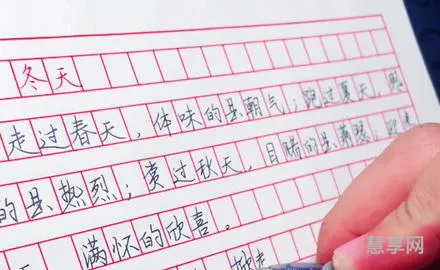 冬天
走过春天，体味的是朝气；跑过夏天，
的是热烈；赏过秋天，目睹的是萧瑟；迎来
满怀的欣喜。
慧享网